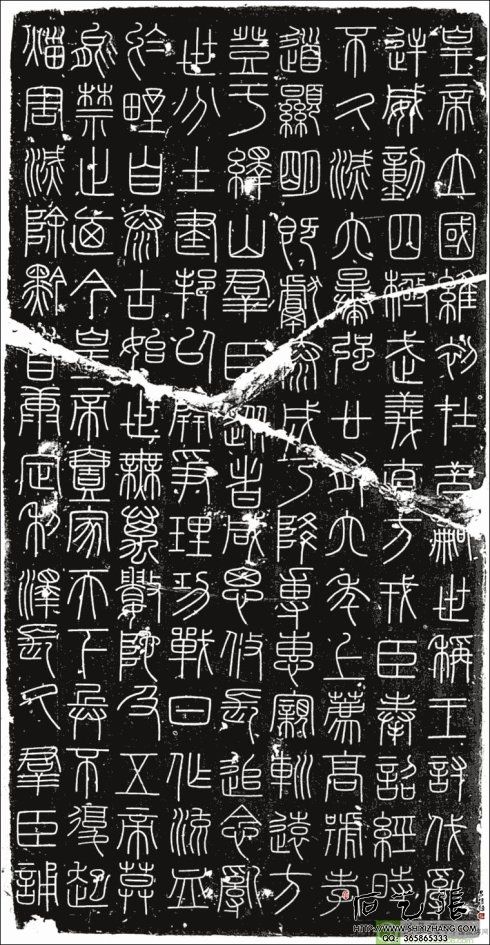 皇帝立國維初在昔嗣世稱王討伐亂
逆威動四極武義直方戎臣奉詔經時
不久滅六暴強廿有六年上薦高號孝
道顯明既獻泰成乃降專惠親巡遠方
登于繹山羣臣從者咸思攸長追念亂
世分土建邦以開爭理功戰日作流血
於野自泰古始世無萬數陀及五帝莫
能禁止廼今皇帝壹家天下兵不復起
烖害滅除黔首康定利澤長久羣臣誦
HTTP://WWW.SHIXIZHANG.COM
QQ: 365865333